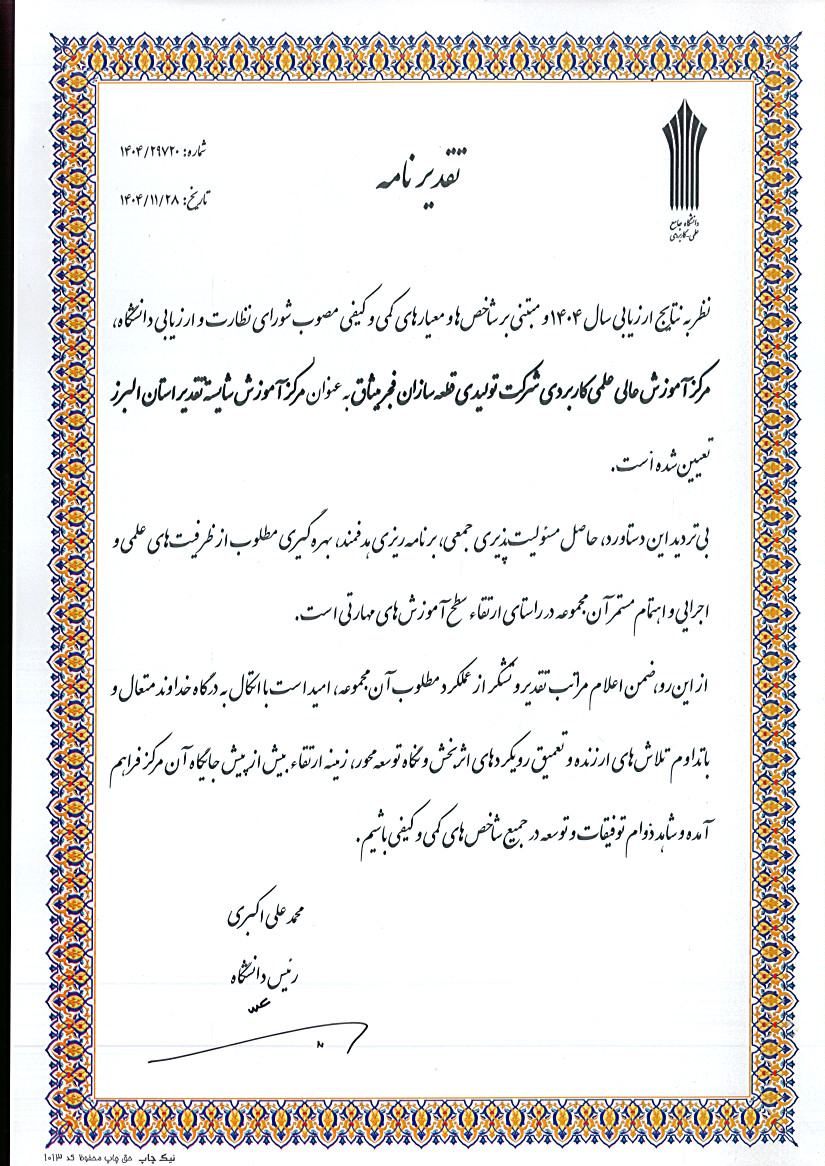 دانشگاه جامع
علمی-کاربردی
تقدیر نامه
شماره: ۱۴۰۴/۲۹۷۲۰
تاریخ: ۱۴۰۴/۱۱/۲۸
نظر به نتایج ارزیابی سال ۱۴۰۴ و مبتنی بر شاخص ها و معیارهای کمی و کیفی مصوب شورای نظارت و ارزیابی دانشگاه،
مرکز آموزش عالی علمی کاربردی شرکت تولیدی قطعه سازان فجر میثاق به عنوان مرکز آموزش شایسته تقدیر استان البرز
تعیین شده است.
بی تردید این دستاورد، حاصل مسئولیت پذیری جمعی، برنامه ریزی هدفمند، بهره گیری مطلوب از ظرفیت های علمی و
اجرایی و اهتمام مستمر آن مجموعه در راستای ارتقاء سطح آموزش های مهارتی است.
از این رو، ضمن اعلام مراتب تقدیر و تشکر از عملکرد مطلوب آن مجموعه، امید است با اتکال به درگاه خداوند متعال و
با تداوم تلاش های ارزنده و تعمیق رویکردهای اثربخش و نگاه توسعه محور، زمینه ارتقاء بیش از پیش جایگاه آن مرکز فراهم
آمده و شاهد دوام توفیقات و توسعه در جمیع شاخص های کمی و کیفی باشیم.
محمد علی اکبری
رئیس دانشگاه
نیک چاپ حق چاپ محفوظ کد ۱۰۱۳